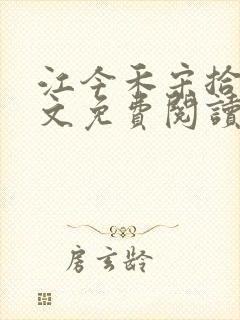 江今禾宋拾
文免費閱讀
房玄龄